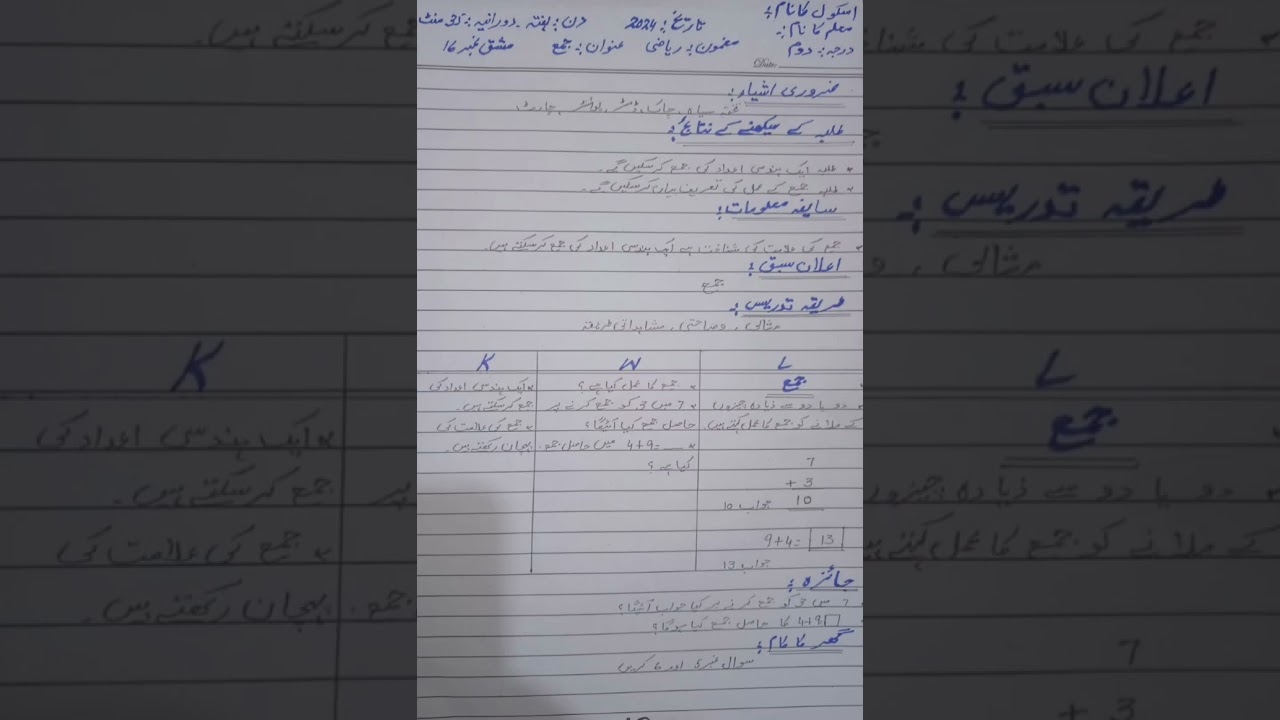 اسکول کا نام:
معلم کا نام:
درجہ: دوم
تاریخ: 2024
دن: ہفتہ
دورانیہ: 35 منٹ
مضمون: ریاضی
عنوان: جمع
مشق نمبر 16
Date:
ضروری اشیاء:
تختہ سیاہ، چاک، ڈسٹر، پوائنٹر، چارٹ
طلبہ کے سیکھنے کے نتائج:
* طلبہ ایک ہندسی اعداد کی جمع کرسکیں گے۔
* طلبہ جمع کے عمل کی تعریف بیان کرسکیں گے۔
سابقہ معلومات:
* جمع کی علامت کی شناخت ہے ایک ہندسی اعداد کی جمع کرسکتے ہیں۔
اعلان سبق:
جمع
طریقہ تدریس:
مثالی، وضاحتی، مشاہداتی طریقہ
L
جمع
* دو یا دو سے زیادہ چیزوں
کے ملانے کو جمع کا عمل کہتے ہیں۔
7
+ 3
10
جواب 10
9+4= 13
جواب 13
W
* جمع کا عمل کیا ہے؟
* 7 میں 3 کو جمع کرنے پر
حاصل جمع کیا آئیگا؟
* __=4+9 میں حاصل جمع
کیا ہے؟
K
* ایک ہندسی اعداد کی
جمع کرسکتے ہیں۔
* جمع کی علامت کی
پہچان رکھتے ہیں۔
جائزہ:
7 میں 3 کو جمع کرنے پر کیا جواب آئیگا؟
4+9 کا حاصل جمع کیا ہوگا؟
گھر کا کام:
سوال نمبر 5 اور 6 کریں